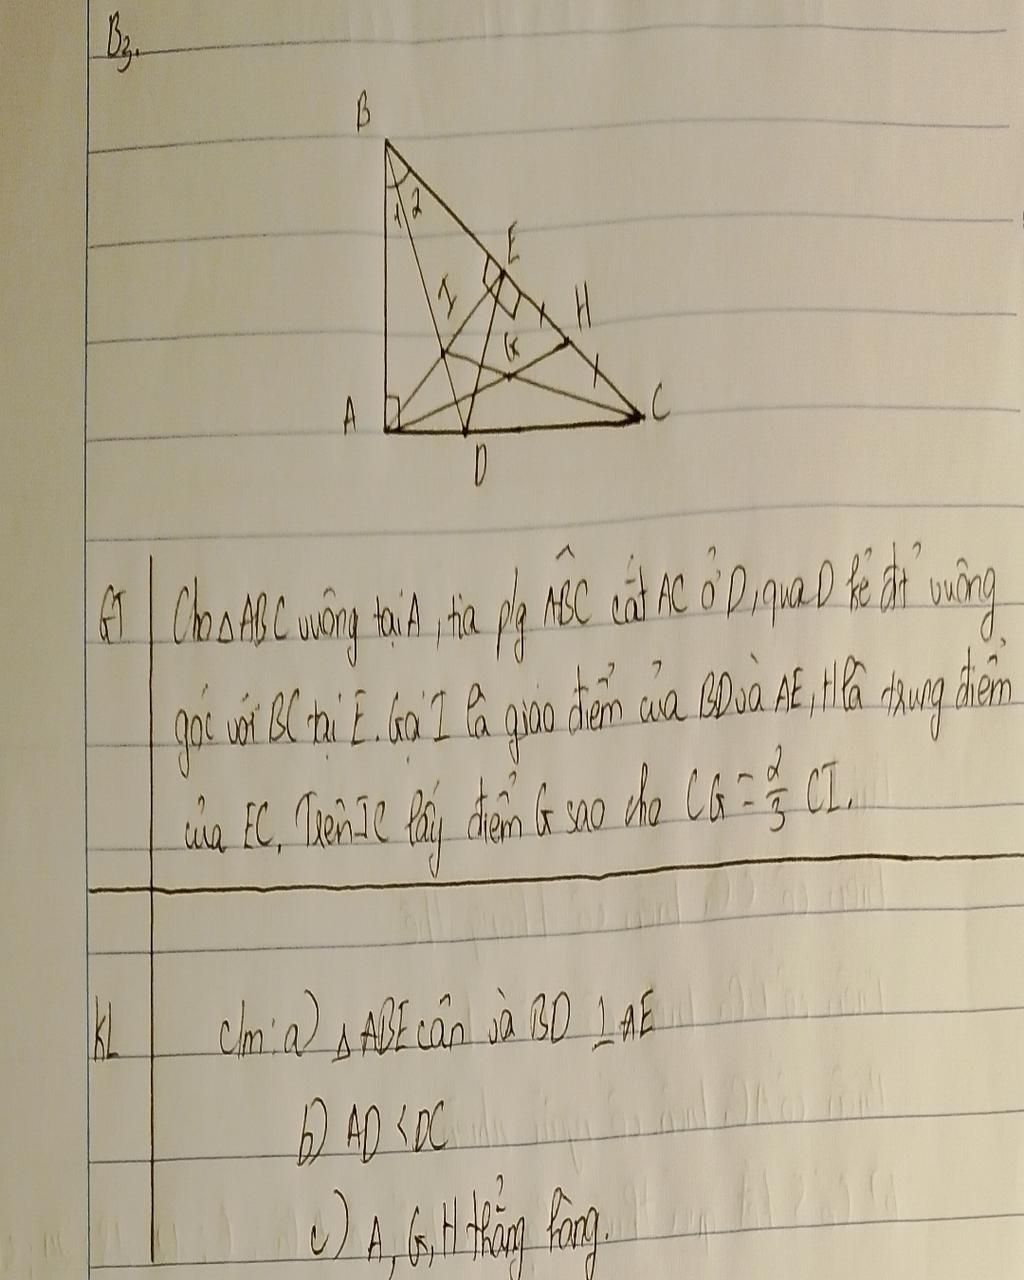 B3.
B
1 2
E
I
H
G
A
C
D
GT Cho △ABC vuông tại A, tia p/g ABC cắt AC ở D, qua D kẻ đt vuông
góc với BC tại E. Gọi I là giao điểm của BD và AE, H là trung điểm
của EC, Trên IC lấy điểm G sao cho CG = 2/3 CI.
KL c/m: a) △ ABE cân và BD ⊥ AE
b) AD < DC
c) A, G, H thẳng hàng.